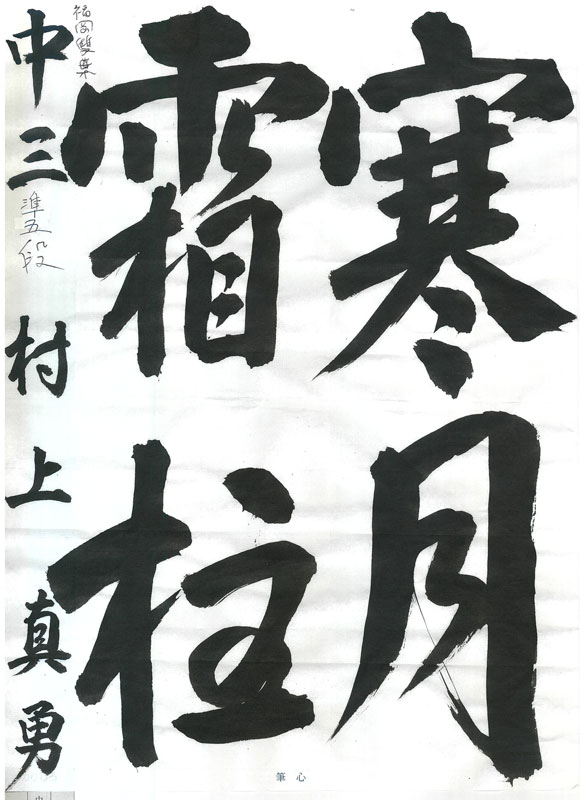 寒月
霜柱
福岡雙葉
中三 準五段 村上真勇
筆心